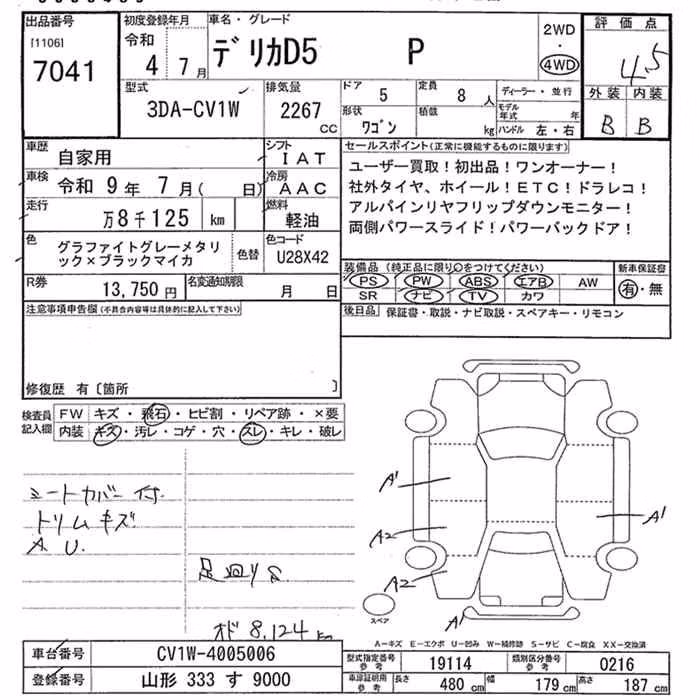 出品番号
[1106]
7041
初度登録年月
令和
4 7月
車名・グレード
デリカD5 P
2WD
・
4WD
評価点
4.5
外装 内装
B B
型式
3DA-CV1W
排気量
2267
cc
ドア
5
定員
8人
形状
ワゴン
積載
kg
ディーラー・並行
モデル年式 年
ハンドル 左・右
車歴
自家用
シフト
IAT
車検
令和 9年 7月( 日)
冷房
AAC
走行
万8千125 km
燃料
軽油
色
グラファイトグレーメタリ
ック×ブラックマイカ
色替
色コード
U28X42
R券
13,750円
名変通知期限
月 日
セールスポイント(正常に機能するものに限ります)
ユーザー買取!初出品!ワンオーナー!
社外タイヤ、ホイール!ETC!ドラレコ!
アルパインリヤフリップダウンモニター!
両側パワースライド!パワーバックドア!
装備品(純正品に限り○をつけてください)
PS PW ABS エアB AW
SR ナビ TV カワ
新車保証書
有・無
後日品 保証書・取説・ナビ取説・スペアキー・リモコン
注意事項申告欄(不具合内容等は具体的に記入して下さい)
修復歴 有〔箇所 〕
検査員
記入欄
FW キズ・飛石・ヒビ割・リペア跡・×要
内装 キズ・汚レ・コゲ・穴・スレ・キレ・破レ
シートカバー付
トリムキズ
A U.
足廻りS
オド 8,124 km
A1
A2
A2
A1
A1
スペア
A-キズ E-エクボ U-凹み W-補修跡 S-サビ C-腐食 XX-交換済
車台番号 CV1W-4005006
登録番号 山形 333 す 9000
型式指定番号
参考
19114
類別区分番号
参考
0216
車庫証明用
参考
長さ 480cm 幅 179cm 高さ 187cm